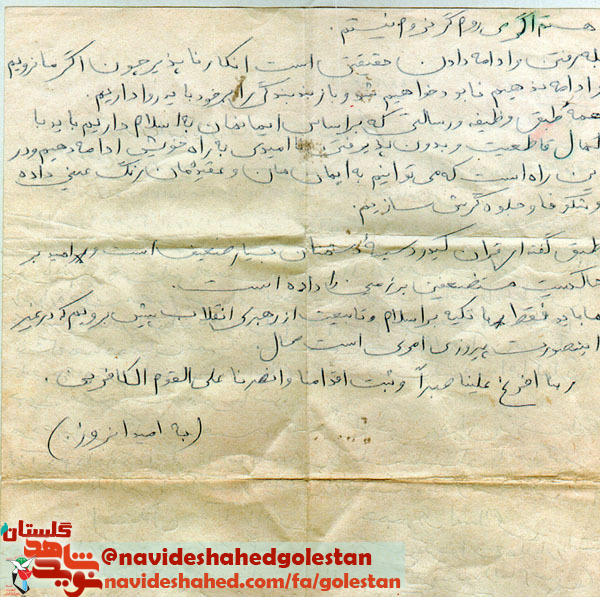 هستم اگر می روم گر نروم نیستم.
رفتن و ادامه دادن حقیقتی است انکار ناپذیر چون اگر ما نرویم
و ادامه ندهیم نابود خواهیم شد و باز بندگی را بر خود باید روا داریم.
همه طبق وظیفه و رسالتی که بر اساس ایمانمان به اسلام داریم باید با
کمال قاطعیت و بدون پذیرفتن ناامیدی به راه خویش ادامه دهیم و در
این راه است که می توانیم به ایمان مان و عقیده مان رنگ عینی داده
و شکوفا و جلوه گرش سازیم.
طبق گفته قرآن کید و دشمنان بسیار ضعیف است و امید بر
حاکمیت مستضعفین بر زمین را داده است.
ما باید فقط با تکیه بر اسلام و تابعیت از رهبری انقلاب پیش برویم که در غیر
اینصورت پیروزی امری است محال.
ربنا افرغ علینا صبراً و ثبت اقدامنا و انصرنا علی القوم الکافرین.
(به امید آنروز.)
گلستان
نوید شاهد
@navideshahedgolestan
navideshahed.com/fa/golestan